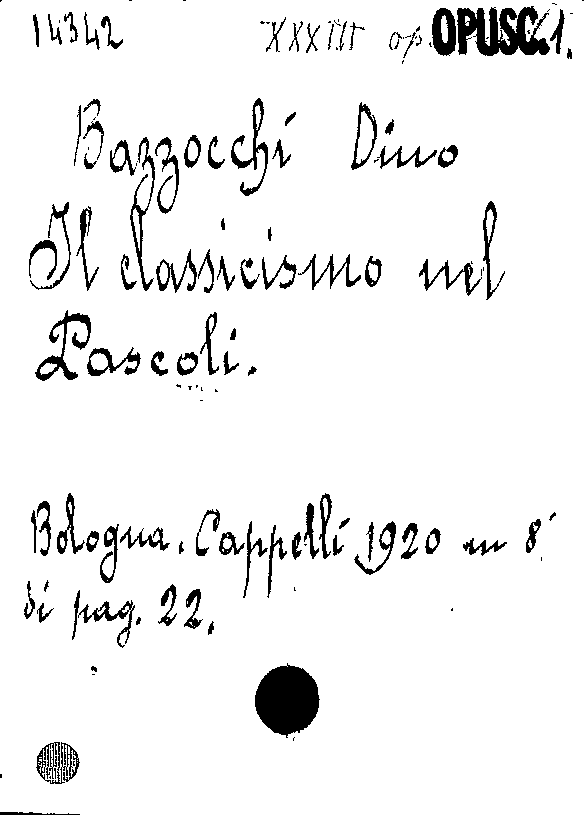 14342 XXXIII op. OPUSC. 1.
Bazzocchi Dino
Il classicismo nel
Pascoli.
Bologna. Cappelli 1920 in 8°
di pag. 22.